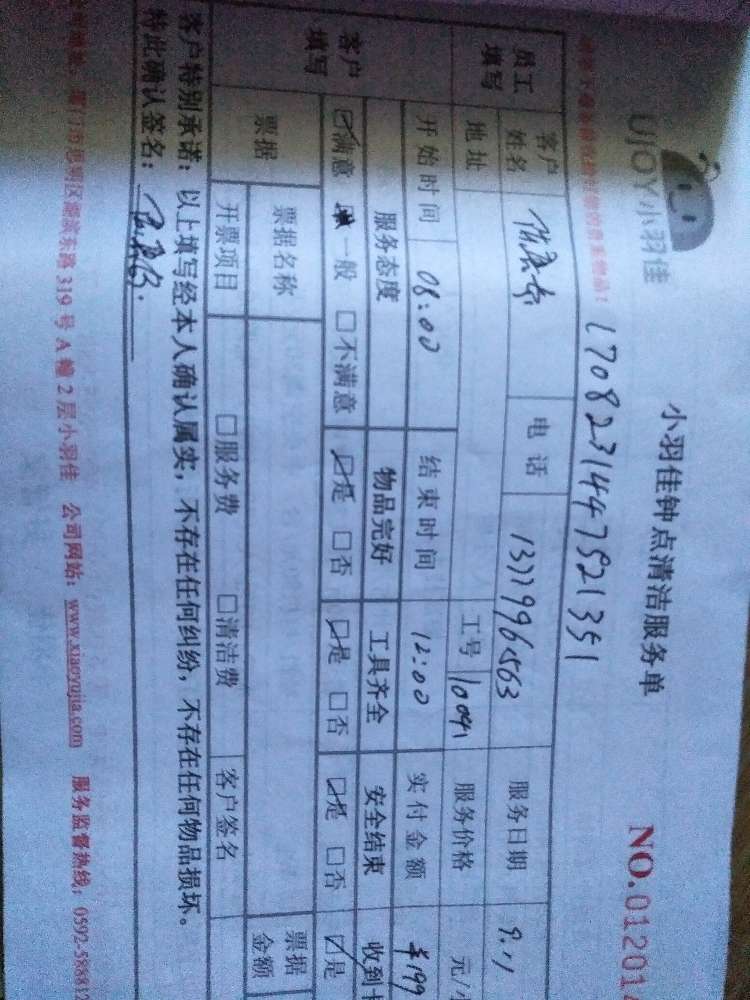 UJOY小羽佳
小羽佳钟点清洁服务单
NO.01201
1708231447521351
员工填写 客户姓名 电话 服务日期 9.11
地址 工号 110091 服务价格 元/
开始时间 08:00 结束时间 12:00 实付金额 ¥199
客户填写 服务态度 物品完好 工具齐全 安全结束 收到
☑满意 一般 □不满意 ☑是 □否 ☑是 □否 ☑是 □否 ☑是
票据 票据名称 票据金额
开票项目 □服务费 □清洁费 客户签名
客户特别承诺：以上填写经本人确认属实，不存在任何纠纷，不存在任何物品损坏。
特此确认签名：
厦门市思明区湖滨东路319号A幢2层小羽佳 公司网站：www.xiaoyujia.com 服务监督热线：0592-58881